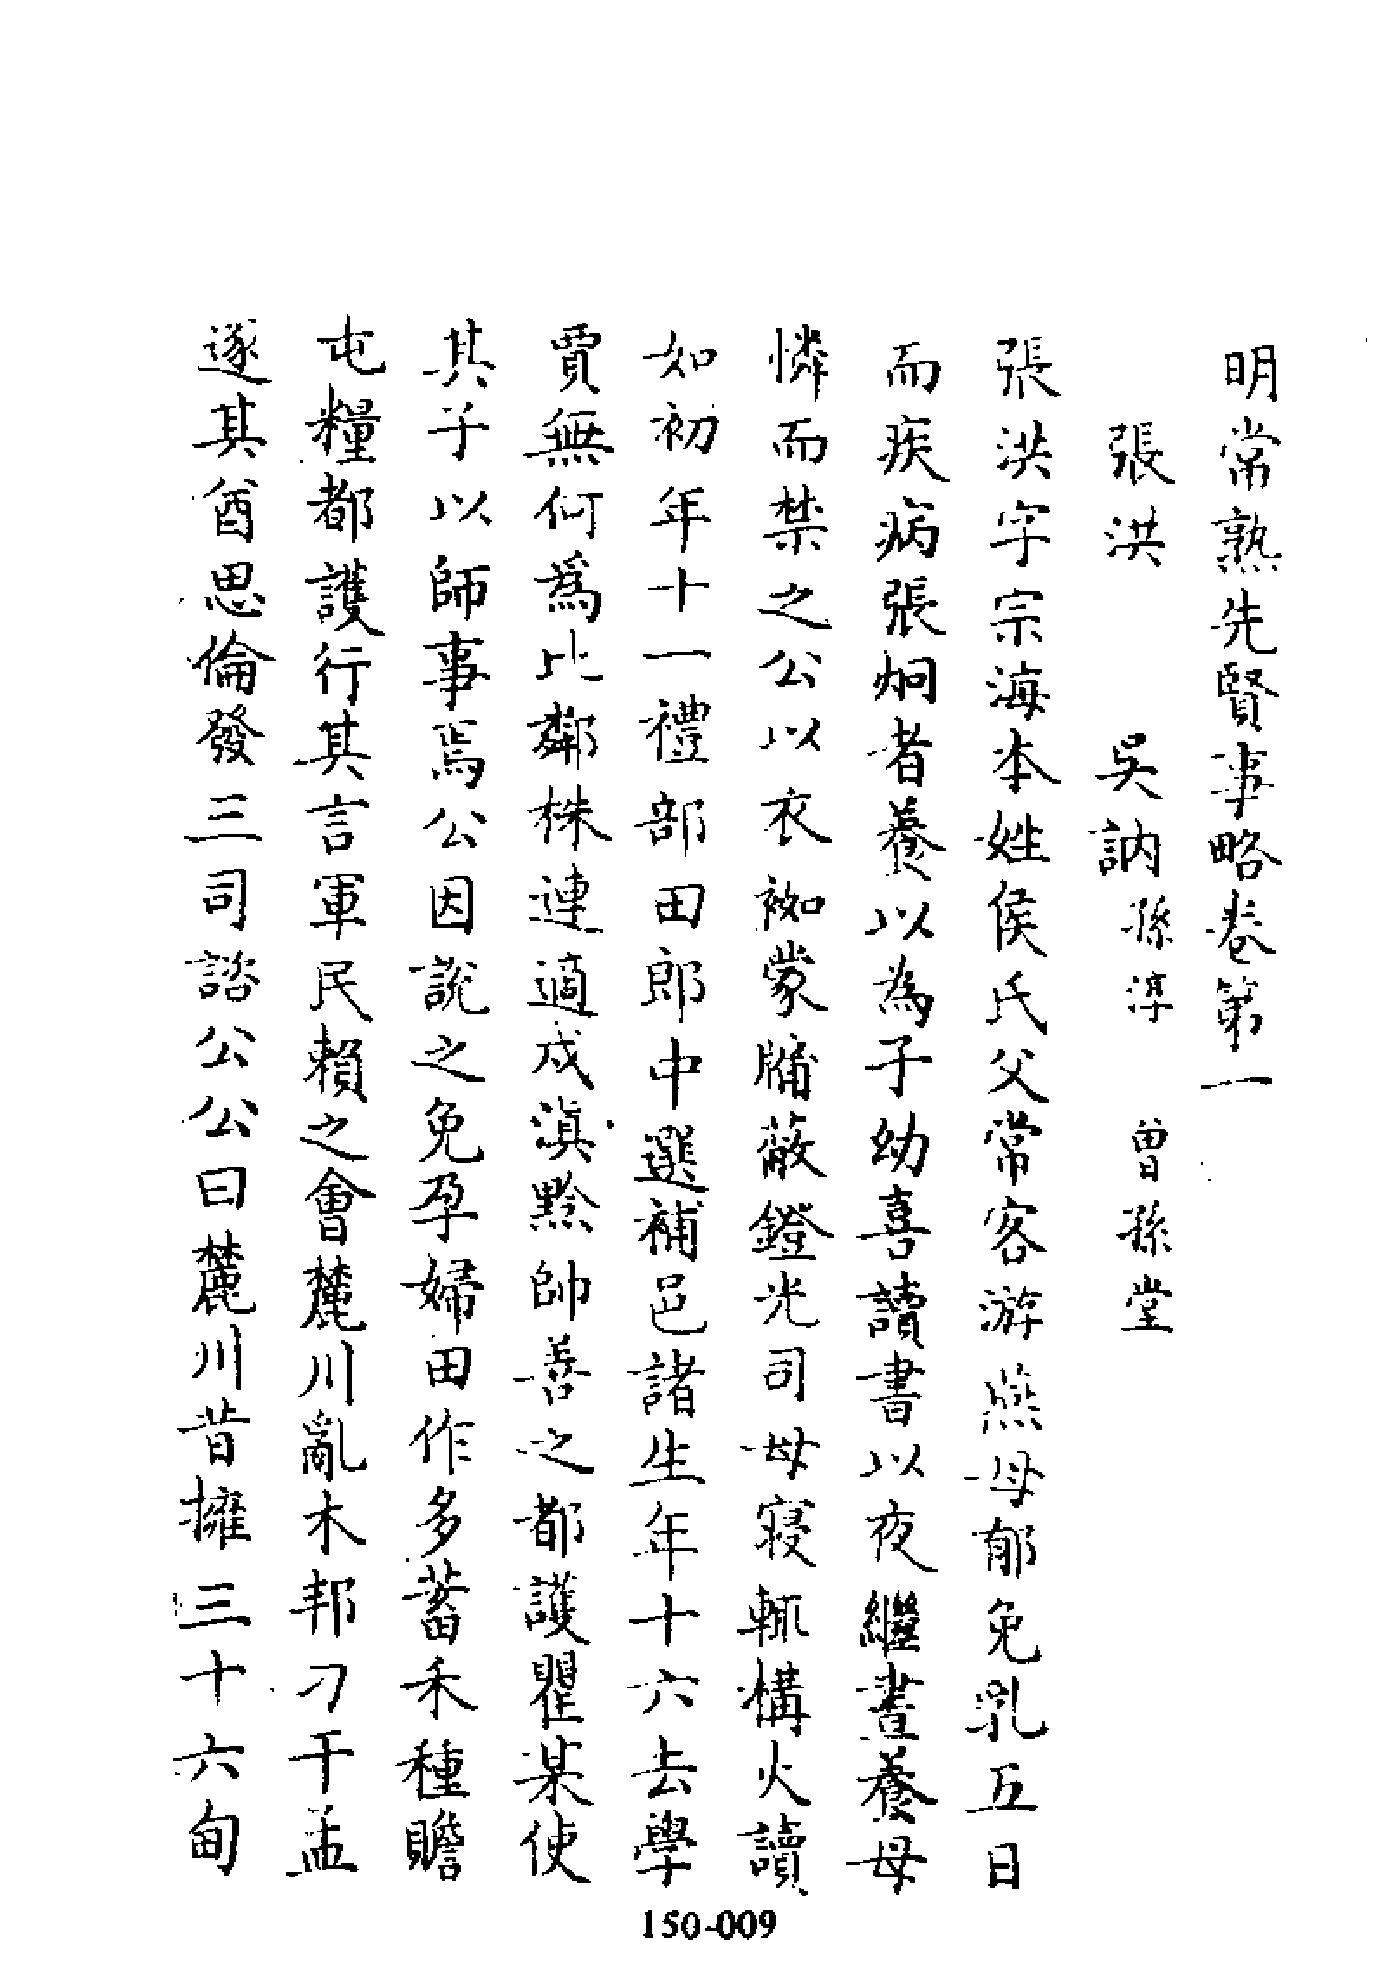 明常熟先賢事略卷第一
張洪 吳訥 孫淳 曾孫堂
張洪字宗海本姓侯氏父常客游燕母郁免乳五日
而疾病張炯者養以為子幼喜讀書以夜繼晝養母
憐而禁之公以衣袽蒙牖蔽鐙光司母寢輒構火讀
如初年十一禮部田郎中選補邑諸生年十六去學
賈無何為比鄰株連適戍滇黔帥善之都護瞿某使
其子以師事焉公因說之免孕婦田作多蓄禾種贍
屯糧都護行其言軍民賴之會麓川亂木邦刁干孟
逐其酋思倫發三司諮公公曰麓川昔擁三十六甸
150-009